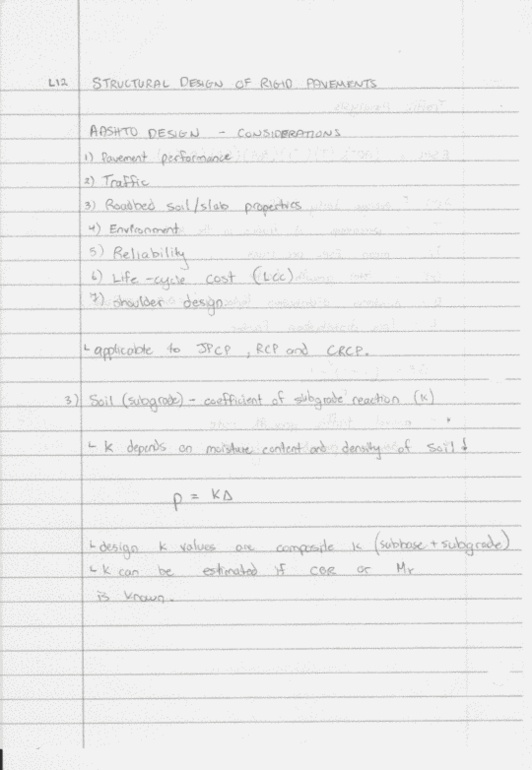 L12 STRUCTURAL DESIGN OF RIGID PAVEMENTS
AASHTO DESIGN - CONSIDERATIONS
1) Pavement performance
2) Traffic
3) Roadbed soil/slab properties
4) Environment
5) Reliability
6) Life-cycle cost (Lcc)
7) Shoulder design
↳ applicable to JPCP, RCP and CRCP.
3) Soil (subgrade) - coefficient of subgrade reaction (k)
↳ k depends on moisture content and density of soil ↓
p = kΔ
↳ design k values are composite k (subbase + subgrade)
↳ k can be estimated if CBR or Mr
is known.